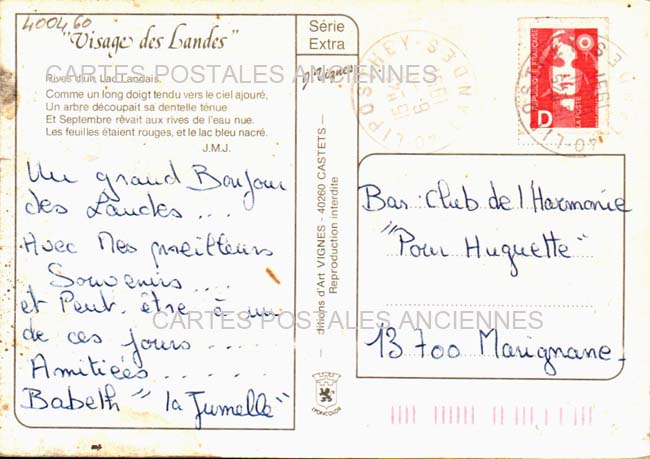 400460
"Visage des Landes"
Rives d'un Lac Landais.
Comme un long doigt tendu vers le ciel ajouré,
Un arbre découpait sa dentelle ténue
Et Septembre rêvait aux rives de l'eau nue.
Les feuilles étaient rouges, et le lac bleu nacré.
J.M.J.
CARTES POSTALES ANCIENNES
Un grand Bonjour
des Landes ....
Avec Mes meilleurs
Souvenirs ....
et Peut-être à un
de ces jours ....
Amitiées ......
Babeth "la Jumelle"
CARTES POSTALES ANCIENNES
Série
Extra
J. Vignes
ditions d'Art VIGNES - 40260 CASTETS -
Reproduction interdite
LYONCOLOR
40 LIPOSTHEY
LANDES
REPUBLIQUE FRANÇAISE
LA POSTE
D
Bar : Club de l'Harmonie
"Pour Huguette"
13700 Marignane